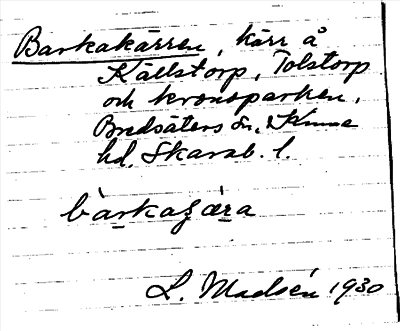 Barkakärren, kärr å
Källstorp, Tolstorp
och kronoparken,
Bredsäters sn, Kinne
hd, Skarab. l.
bàrkaʒæra
L. Madsén 1930